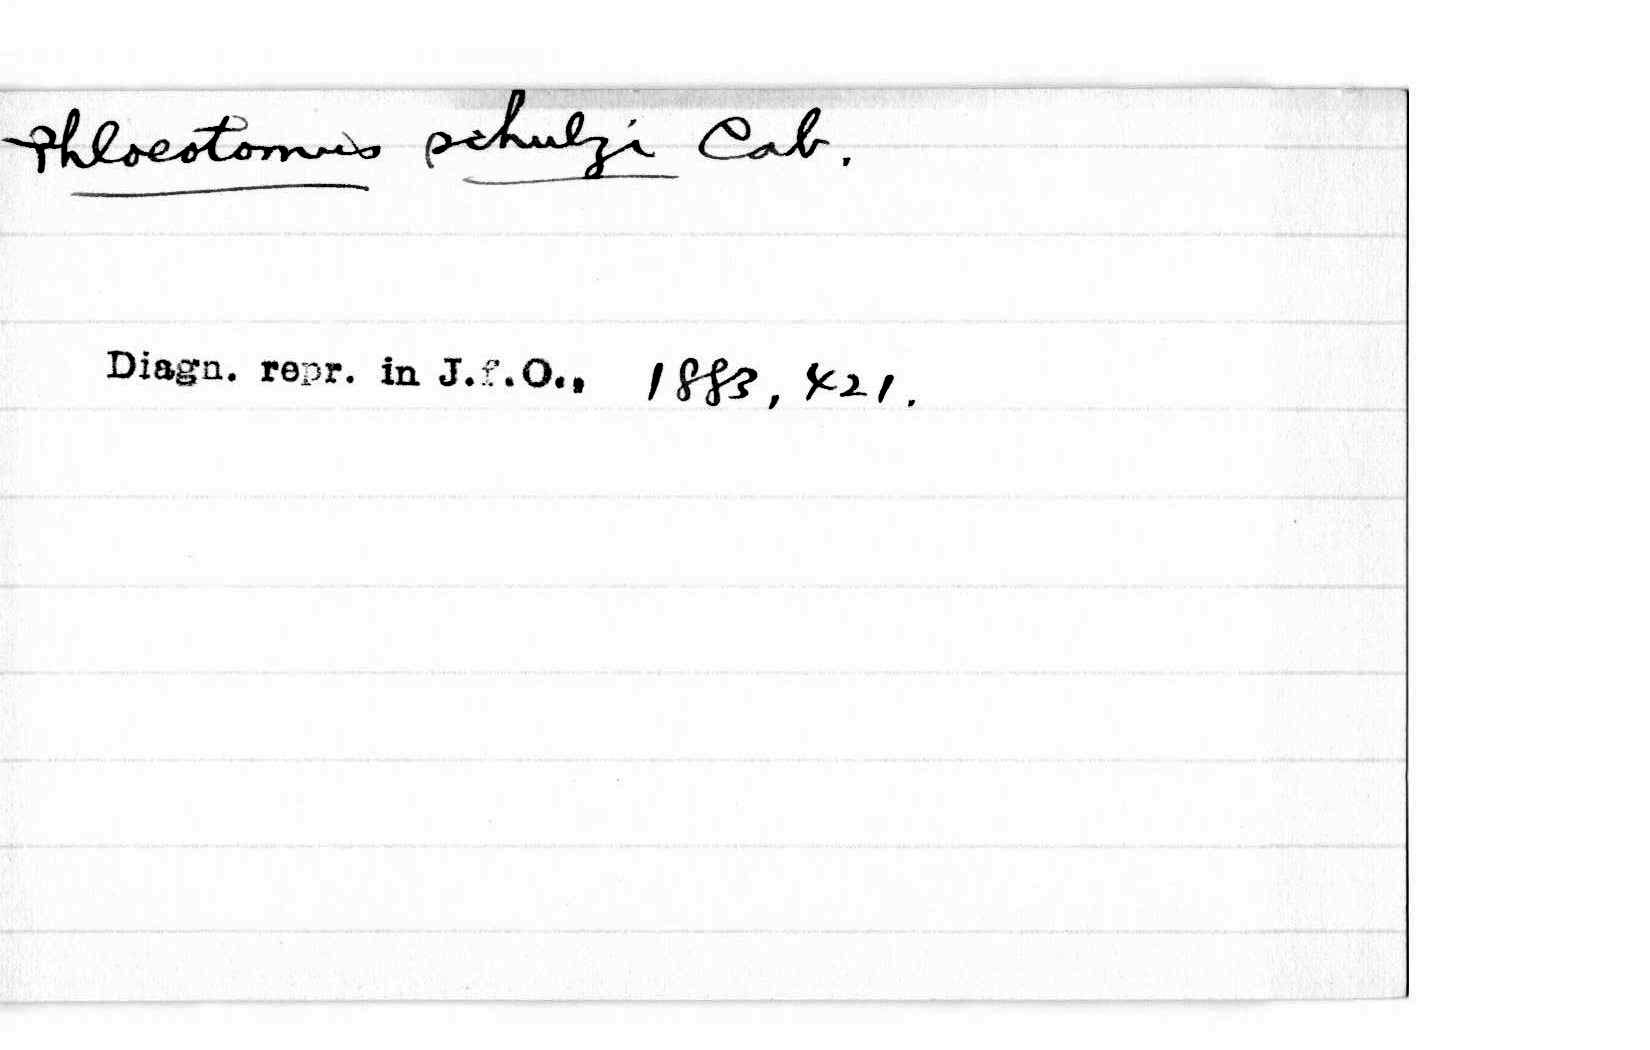 Phloeotomus schulzi Cab.
Diagn. repr. in J.f.O., 1883, 421.